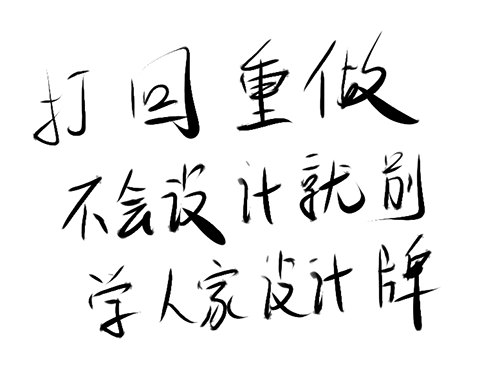 打回重做
不会设计就别
学人家设计牌